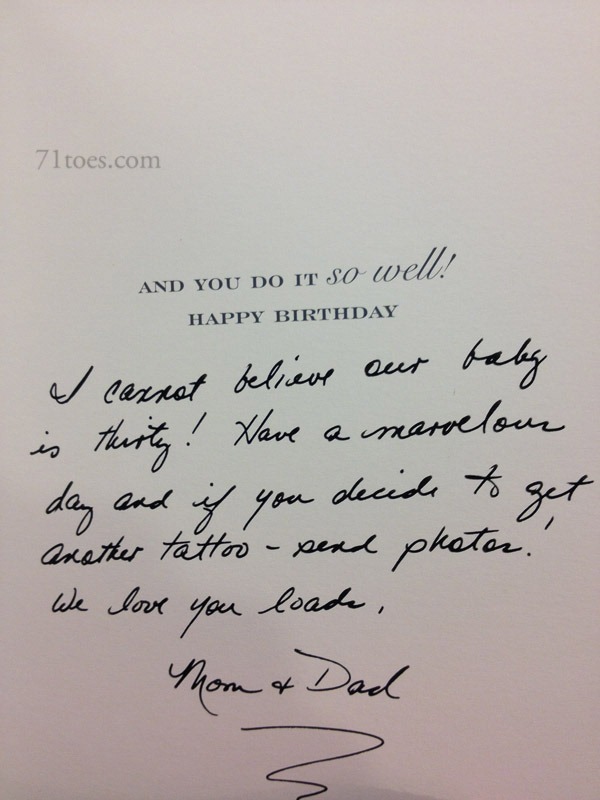 71toes.com
AND YOU DO IT so well!
HAPPY BIRTHDAY
I cannot believe our baby
is thirty! Have a marvelous
day and if you decide to get
another tattoo - send photos!
We love you loads.
Mom & Dad